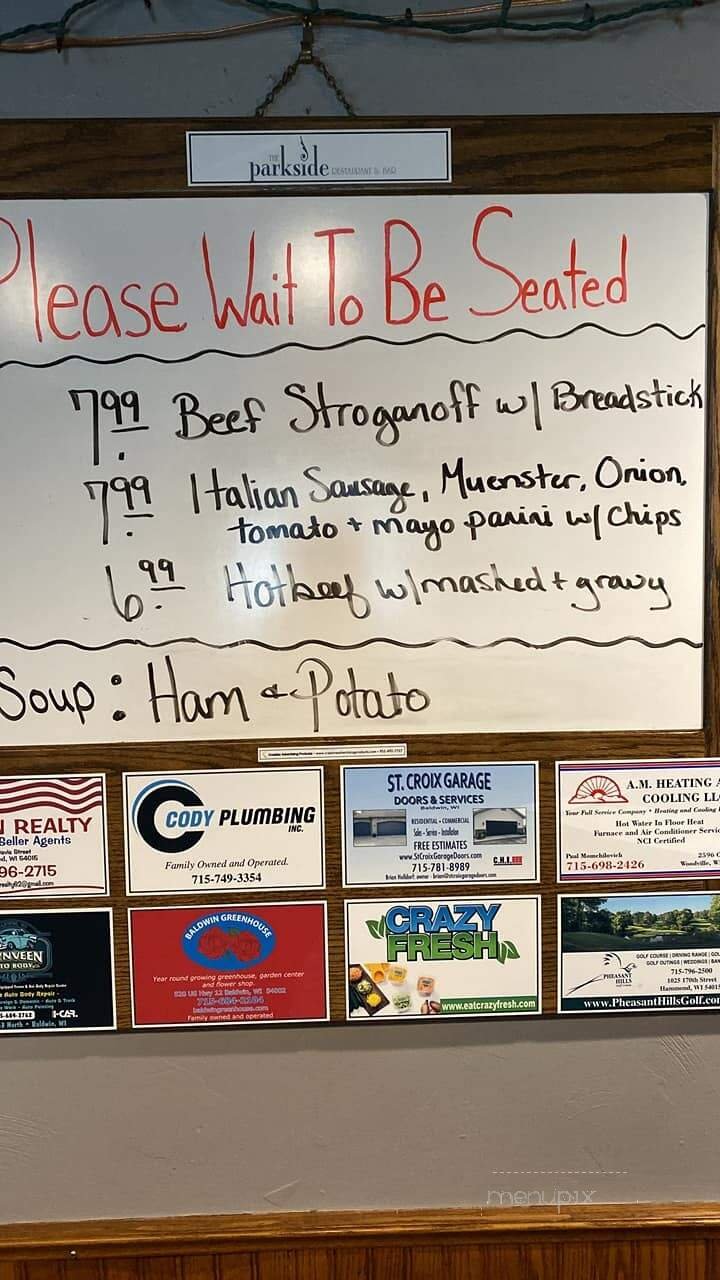 THE
parkside RESTAURANT & BAR
Please Wait To Be Seated
7.99 Beef Stroganoff w/ Breadstick
7.99 Italian Sausage, Muenster, Onion,
tomato + mayo panini w/ Chips
6.99 Hotbeef w/mashed + gravy
Soup: Ham & Potato
N REALTY
Seller Agents
Davis Street
d, WI 54015
96-2715
realty82@gmail.com
CODY PLUMBING
INC.
Family Owned and Operated.
715-749-3354
ST. CROIX GARAGE
DOORS & SERVICES
Baldwin, WI
RESIDENTIAL • COMMERCIAL
Sales - Service - Installation
FREE ESTIMATES
www.StCroixGarageDoors.com
715-781-8989
C.H.I.
Brian Holldorf: owner - brian@stcroixgaragedoors.com
A.M. HEATING A
COOLING LL
Your Full Service Company • Heating and Cooling
Hot Water In Floor Heat
Furnace and Air Conditioner Servi
NCI Certified
Paul Momchilovich
715-698-2426
2596 C
Woodville, W
RNVEEN
TO BODY
Auto Body Repair
5-684-3763
I-CAR
3 North • Baldwin, WI
BALDWIN GREENHOUSE
Year round growing greenhouse, garden center
and flower shop.
520 US Hwy 12 Baldwin, WI 54002
715-684-2184
baldwingreenhouse.com
Family owned and operated
CRAZY
FRESH
www.eatcrazyfresh.com
PHEASANT
HILLS
GOLF COURSE | DRIVING RANGE | GOL
GOLF OUTINGS | WEDDINGS | BAN
715-796-2500
1025 170th Street
Hammond, WI 5401
www.PheasantHillsGolf.co
menupix